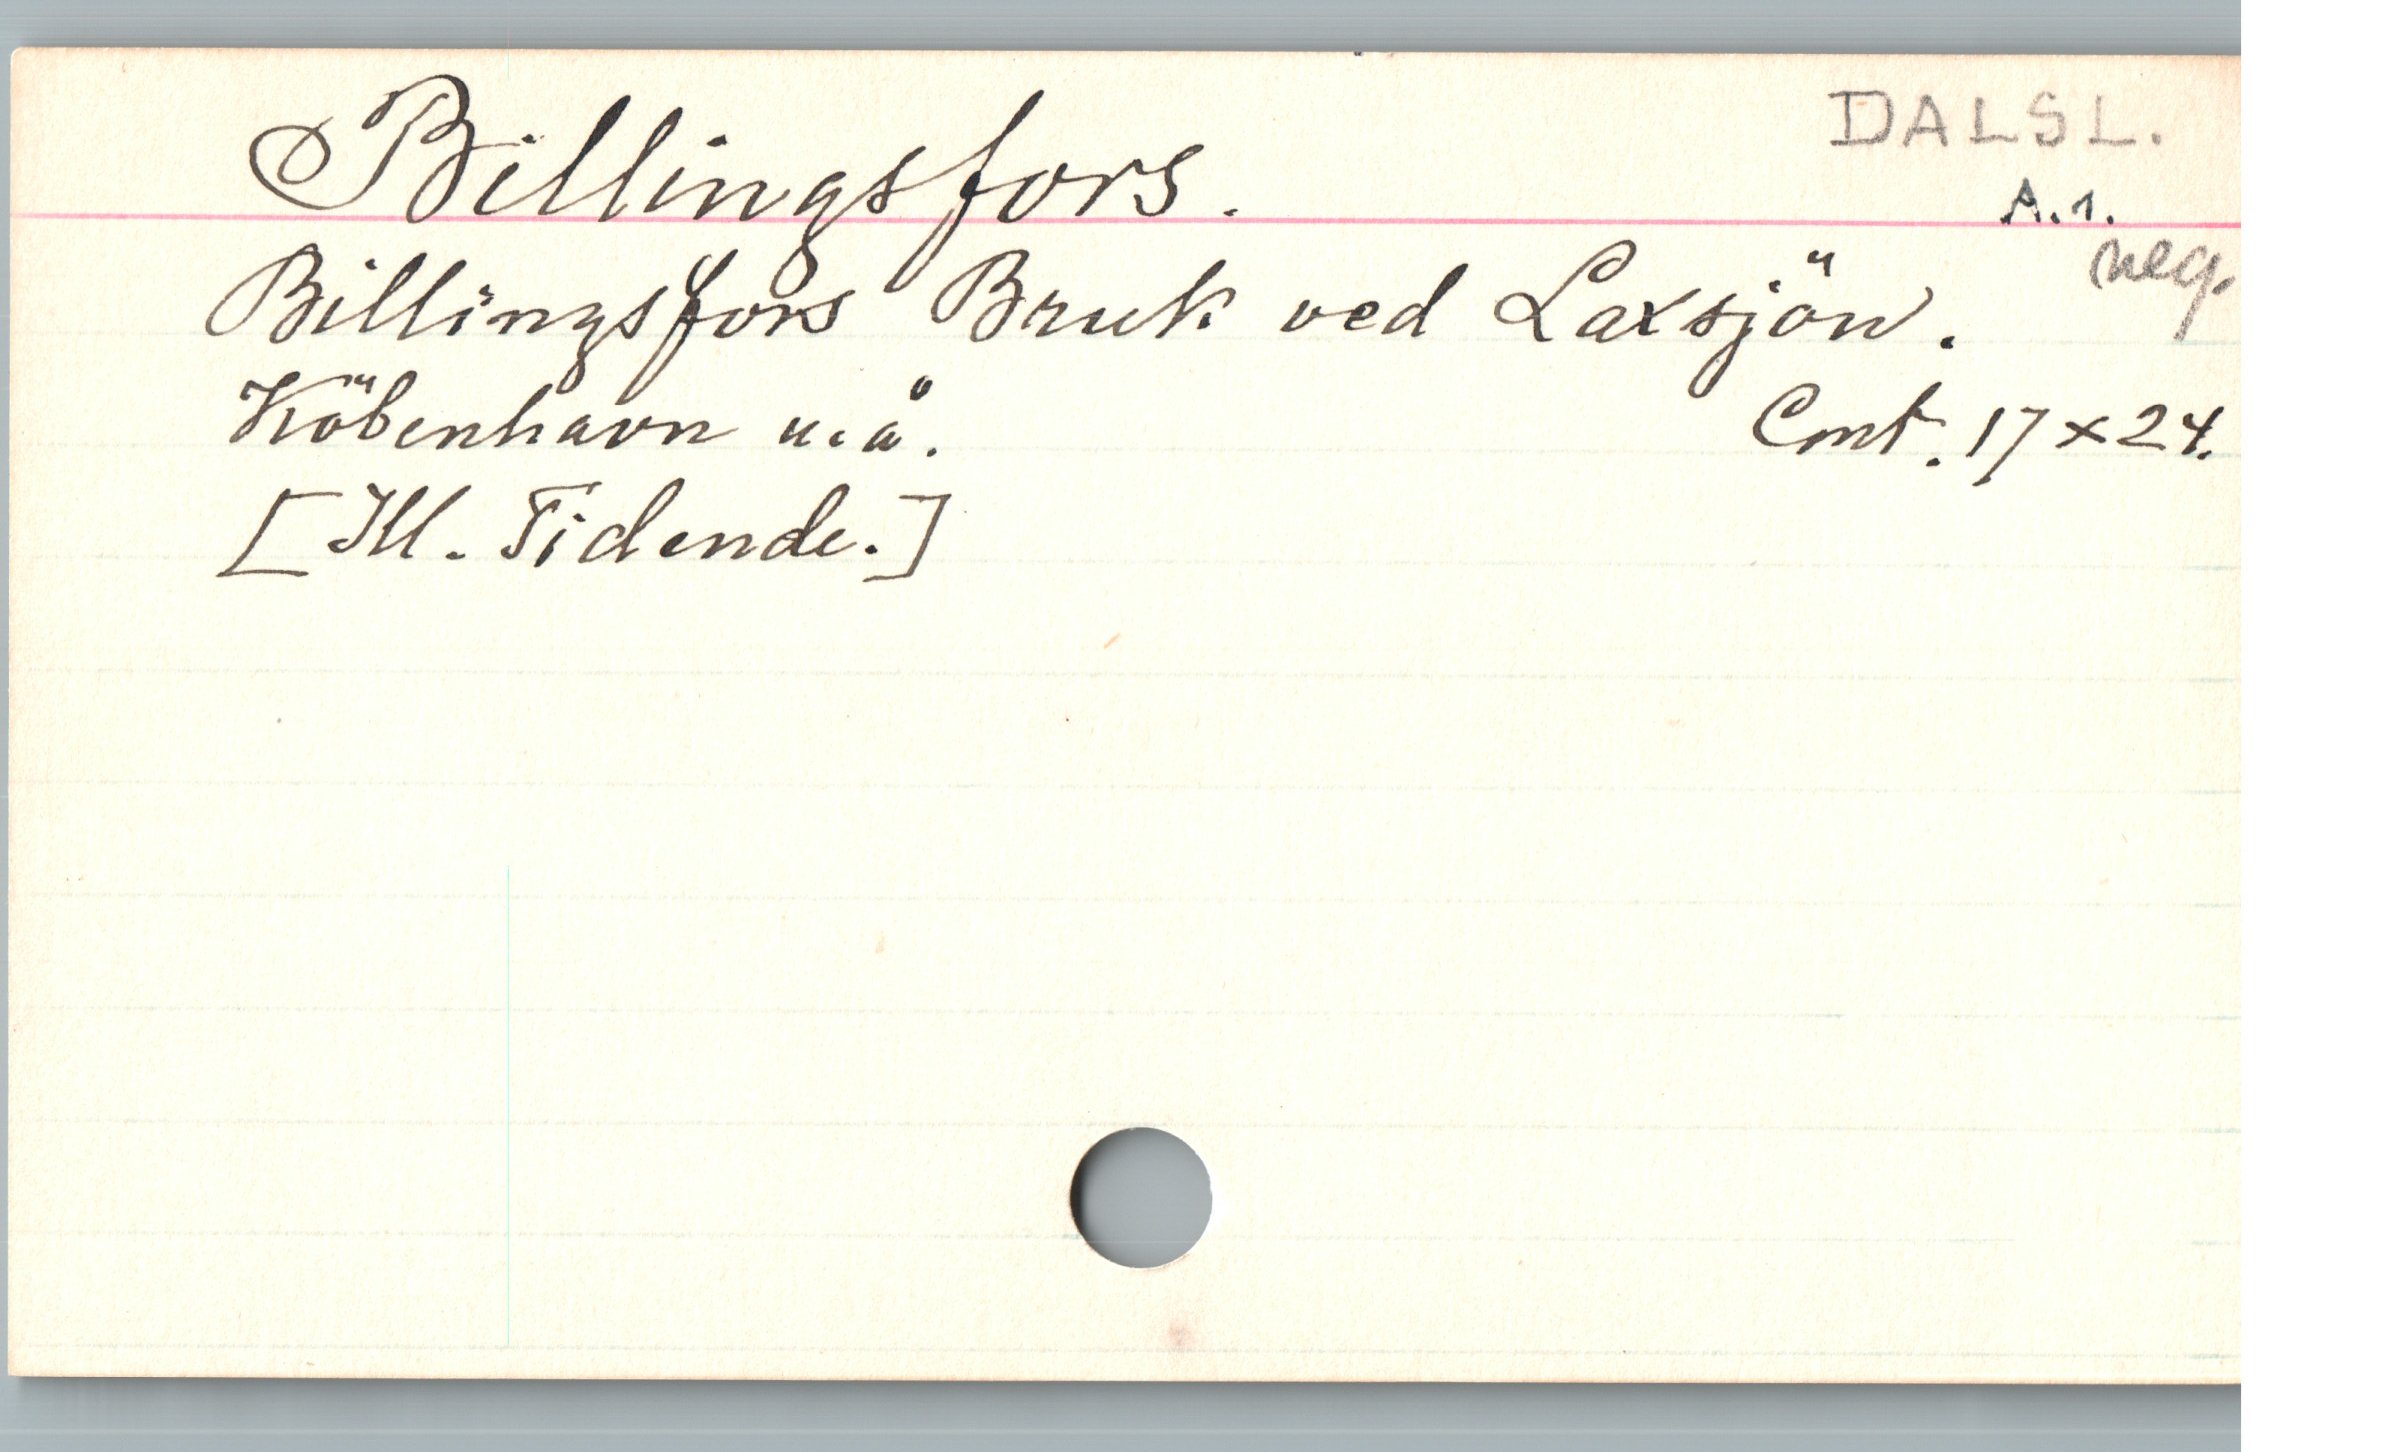 Billingsfors.
DALSL.
A.1.
neg.
Billingsfors Bruk ved Laxsjön.
Köbenhavn u.å.
Cmt. 17x24.
[Ill. Tidende.]